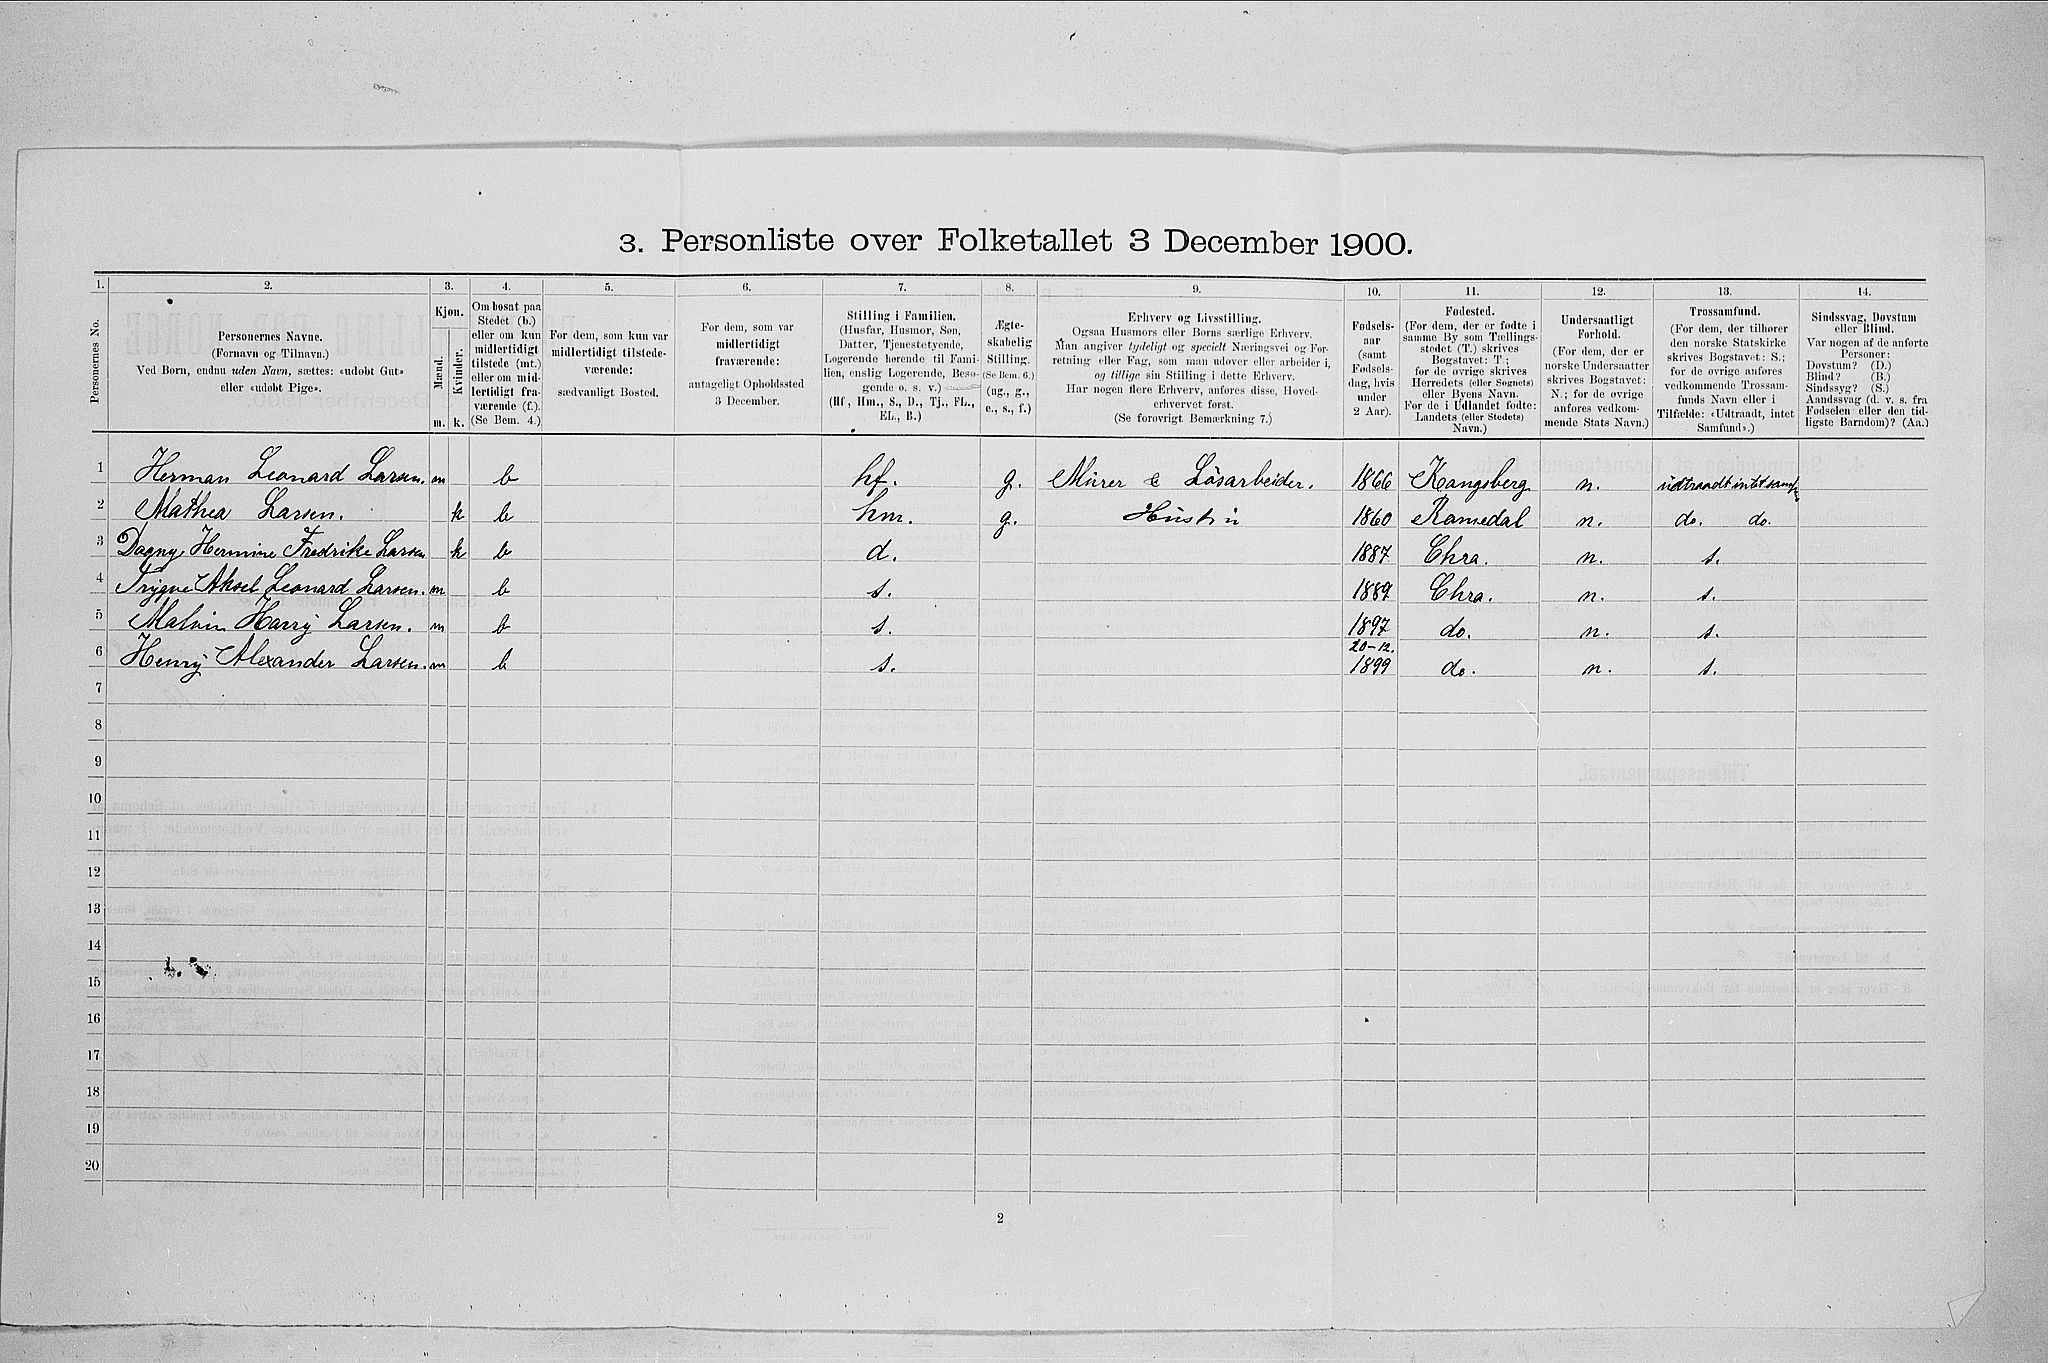 3. Personliste over Folketallet 3 December 1900.
1. 2. 3. 4. 5. 6. 7. 8. 9. 10. 11. 12. 13. 14.
Personernes No.
Personernes Navne.
(Fornavn og Tilnavn.)
Ved Børn, endnu uden Navn, sættes: «udøbt Gut»
eller «udøbt Pige».
Kjøn.
Mænd.
Kvinder.
m. k.
Om bosat paa
Stedet (b.)
eller om kun
midlertidigt
tilstede (mt.)
eller om mid-
lertidigt fra-
værende (f.)
(Se Bem. 4.)
For dem, som kun var
midlertidigt tilstede-
værende:
sædvanligt Bosted.
For dem, som var
midlertidigt
fraværende:
antageligt Opholdssted
3 December.
Stilling i Familien.
(Husfar, Husmor, Søn,
Datter, Tjenestetyende,
Logerende hørende til Fami-
lien, enslig Logerende, Besø-
gende o. s. v.)
(Hf, Hm., S., D., Tj., FL.,
EL., B.)
Ægte-
skabelig
Stilling.
(Se Bem. 6.)
(ug., g.,
e., s., f.)
Erhverv og Livsstilling.
Ogsaa Husmors eller Børns særlige Erhverv.
Man angiver tydeligt og specielt Næringsvei og For-
retning eller Fag, som man udøver eller arbeider i,
og tillige sin Stilling i dette Erhverv.
Har nogen flere Erhverv, anføres disse, Hoved-
erhvervet først.
(Se forøvrigt Bemærkning 7.)
Fødsels-
aar
(samt
Fødsels-
dag, hvis
under
2 Aar).
Fødested.
(For dem, der er fødte i
samme By som Tællings-
stedet (T.) skrives
Bogstavet: T.;
for de øvrige skrives
Herredets (eller Sognets)
eller Byens Navn.
For de i Udlandet fødte:
Landets (eller Stedets)
Navn.)
Undersaatligt
Forhold.
(For dem, der er
norske Undersaatter
skrives Bogstavet:
N.; for de øvrige
anføres vedkom-
mende Stats Navn.)
Trossamfund.
(For dem, der tilhører
den norske Statskirke
skrives Bogstavet: S.;
for de øvrige anføres
vedkommende Trossam-
funds Navn eller i
Tilfælde: «Udtraadt, intet
Samfund».)
Sindssvag, Døvstum
eller Blind.
Var nogen af de anførte
Personer:
Døvstum? (D.)
Blind? (B.)
Sindssyg? (S.)
Aandssvag (d. v. s. fra
Fødselen eller den tid-
ligste Barndom)? (Aa.)
1 Herman Leonard Larsen. m b hf. g. Mürer & Løsarbeider. 1866 Kongsberg n. udtraadt intet samf
2 Mathea Larsen. k b hm. g. Hustru 1860 Romsdal n. do. do.
3 Dagny Hermine Fredrike Larsen k b d. 1887 Chra. n. s.
4 Trygve Aksel Leonard Larsen. m b s. 1889 Chra. n. s.
5 Malvin Harry Larsen. m b s. 1897 do. n. s.
6 Henry Alexander Larsen. m b s. 20-12. 1899 do. n. s.
7
8
9
10
11
12
13
14
15
16
17
18
19
20
2